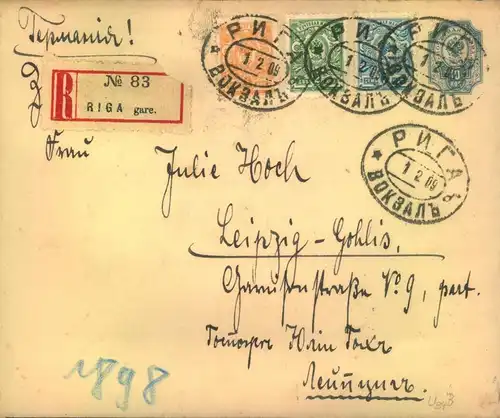 Германія!
№ 83
R
RIGA gare.
РИГА
ВОКЗАЛЪ
1 2 09
РИГА
ВОКЗАЛЪ
1 2 09
РИГА
ВОКЗАЛЪ
1 2 09
РИГА
ВОКЗАЛЪ
1 2 09
Frau
Julie Hoch
Leipzig-Gohlis,
straße No 9, part.
Юлія Гохъ
Лейпцигъ.
1898